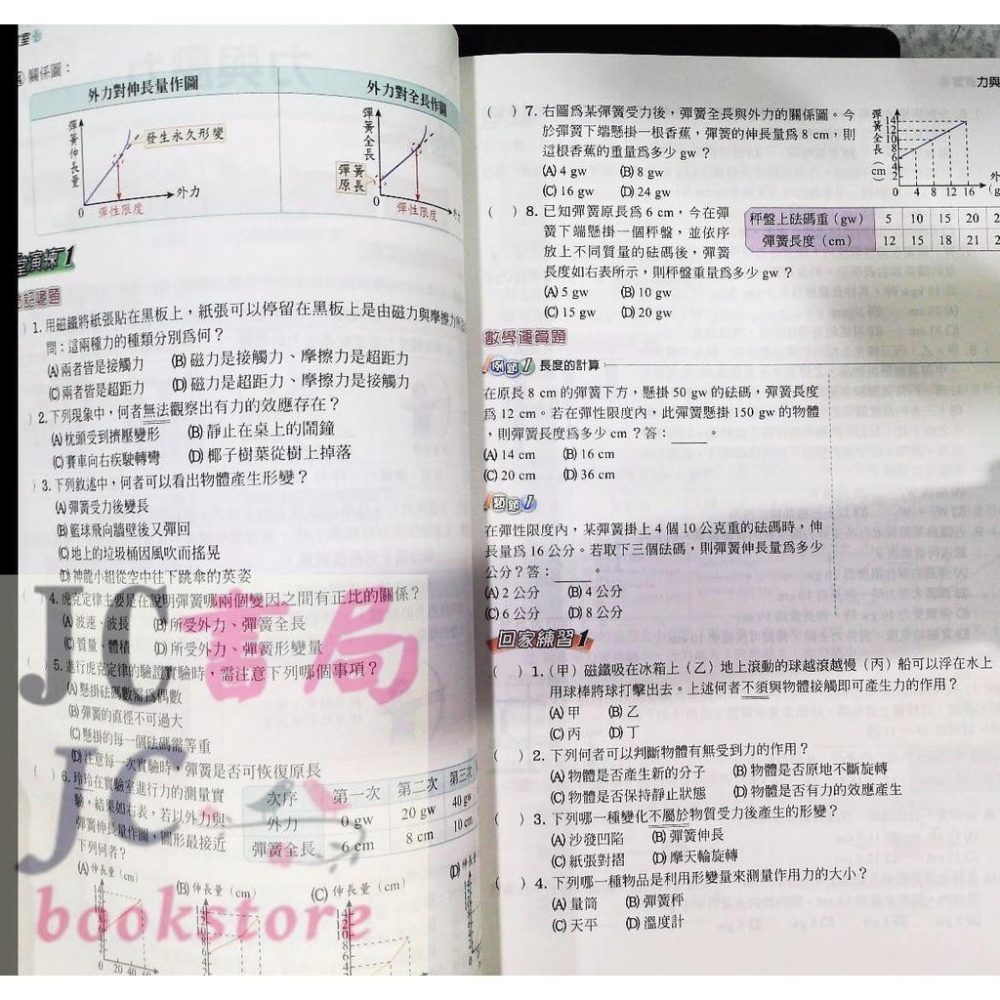 關係圖：
外力對伸長量作圖
外力對全長作圖
彈簧伸長量
發生永久形變
外力
0
彈性限度
彈簧全長
彈簧原長
0
彈性限度
1. 用磁鐵將紙張貼在黑板上，紙張可以停留在黑板上是由磁力與摩擦力所
問：這兩種力的種類分別為何？
(A) 兩者皆是接觸力 (B) 磁力是接觸力、摩擦力是超距力
(C) 兩者皆是超距力 (D) 磁力是超距力、摩擦力是接觸力
2. 下列現象中，何者無法觀察出有力的效應存在？
(A) 枕頭受到擠壓變形 (B) 靜止在桌上的鬧鐘
(C) 賽車向右疾駛轉彎 (D) 椰子樹葉從樹上掉落
3. 下列敘述中，何者可以看出物體產生形變？
(A) 彈簧受力後變長
(B) 籃球飛向牆壁後又彈回
(C) 地上的垃圾桶因風吹而搖晃
(D) 神龍小組從空中往下跳傘的英姿
4. 虎克定律主要是在說明彈簧哪兩個變因之間有正比的關係？
(A) 波速、波長 (B) 所受外力、彈簧全長
(C) 質量、體積 (D) 所受外力、彈簧形變量
5. 進行虎克定律的驗證實驗時，需注意下列哪個事項？
(A) 懸掛砝碼數需為偶數
(B) 彈簧的直徑不可過大
(C) 懸掛的每一個砝碼需等重
(D) 注意每一次實驗時，彈簧是否可恢復原長
6. 玲玲在實驗室進行力的測量實
驗，結果如右表，若以外力與
彈簧伸長量作圖，圖形最接近
下列何者？
次序 第一次 第二次 第三次
外力 0 gw 20 gw 40 gw
彈簧全長 6 cm 8 cm 10 cm
(A) 伸長量（cm）
(B) 伸長量（cm）
(C) 伸長量（cm）
(D)
JC書局
JC
bookstore
( ) 7. 右圖為某彈簧受力後，彈簧全長與外力的關係圖。今
於彈簧下端懸掛一根香蕉，彈簧的伸長量為 8 cm，則
這根香蕉的重量為多少 gw？
(A) 4 gw (B) 8 gw
(C) 16 gw (D) 24 gw
彈簧全長（cm）
14
12
10
8
6
4
2
0 4 8 12 16
( ) 8. 已知彈簧原長為 6 cm，今在彈
簧下端懸掛一個秤盤，並依序
放上不同質量的砝碼後，彈簧
長度如右表所示，則秤盤重量為多少 gw？
(A) 5 gw (B) 10 gw
(C) 15 gw (D) 20 gw
秤盤上砝碼重（gw） 5 10 15 20
彈簧長度（cm） 12 15 18 21
數學運算題
例題 1 長度的計算
在原長 8 cm 的彈簧下方，懸掛 50 gw 的砝碼，彈簧長度
為 12 cm。若在彈性限度內，此彈簧懸掛 150 gw 的物體
，則彈簧長度為多少 cm？答：____。
(A) 14 cm (B) 16 cm
(C) 20 cm (D) 36 cm
類題 1
在彈性限度內，某彈簧掛上 4 個 10 公克重的砝碼時，伸
長量為 16 公分。若取下三個砝碼，則彈簧伸長量為多少
公分？答：____。
(A) 2 公分 (B) 4 公分
(C) 6 公分 (D) 8 公分
回家練習 1
( ) 1. （甲）磁鐵吸在冰箱上（乙）地上滾動的球越滾越慢（丙）船可以浮在水上
用球棒將球打擊出去。上述何者不須與物體接觸即可產生力的作用？
(A) 甲 (B) 乙
(C) 丙 (D) 丁
( ) 2. 下列何者可以判斷物體有無受到力的作用？
(A) 物體是否產生新的分子 (B) 物體是否原地不斷旋轉
(C) 物體是否保持靜止狀態 (D) 物體是否有力的效應產生
( ) 3. 下列哪一種變化不屬於物質受力後產生的形變？
(A) 沙發凹陷 (B) 彈簧伸長
(C) 紙張對摺 (D) 摩天輪旋轉
( ) 4. 下列哪一種物品是利用形變量來測量作用力的大小？
(A) 量筒 (B) 彈簧秤
(C) 天平 (D) 溫度計